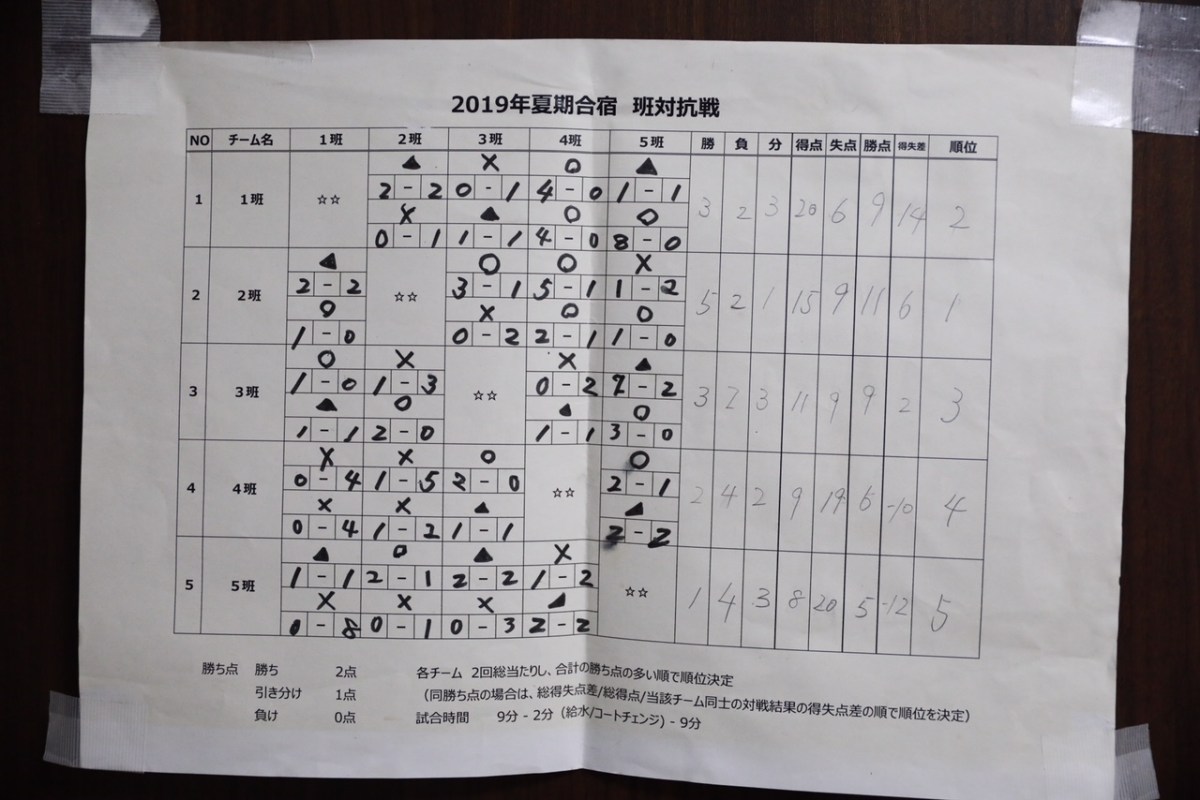 2019年夏期合宿 班対抗戦
NO チーム名 1班 2班 3班 4班 5班 勝 負 分 得点 失点 勝点 得失差 順位
▲ × ○ ▲
1 1班 ☆☆ 2 - 2 0 - 1 4 - 0 1 - 1 3 2 3 20 6 9 14 2
× ▲ ○ ○
0 - 1 1 - 1 4 - 0 8 - 0
▲ ○ ○ ×
2 2班 2 - 2 ☆☆ 3 - 1 5 - 1 1 - 2 5 2 1 15 9 11 6 1
○ × ○ ○
1 - 0 0 - 2 2 - 1 1 - 0
○ × × ▲
3 3班 1 - 0 1 - 3 ☆☆ 0 - 2 2 - 2 3 2 3 11 9 9 2 3
▲ ○ ▲ ○
1 - 1 2 - 0 1 - 1 3 - 0
× × ○ ○
4 4班 0 - 4 1 - 5 2 - 0 ☆☆ 2 - 1 2 4 2 9 19 6 -10 4
× × ▲ ▲
0 - 4 1 - 2 1 - 1 2 - 2
▲ ○ ▲ ×
5 5班 1 - 1 2 - 1 2 - 2 1 - 2 ☆☆ 1 4 3 8 20 5 -12 5
× × × ▲
0 - 8 0 - 1 0 - 3 2 - 2
勝ち点 勝ち 2点 各チーム 2回総当たりし、合計の勝ち点の多い順で順位決定
引き分け 1点 （同勝ち点の場合は、総得失点差/総得点/当該チーム同士の対戦結果の得失点差の順で順位を決定）
負け 0点 試合時間 9分 - 2分（給水/コートチェンジ) - 9分